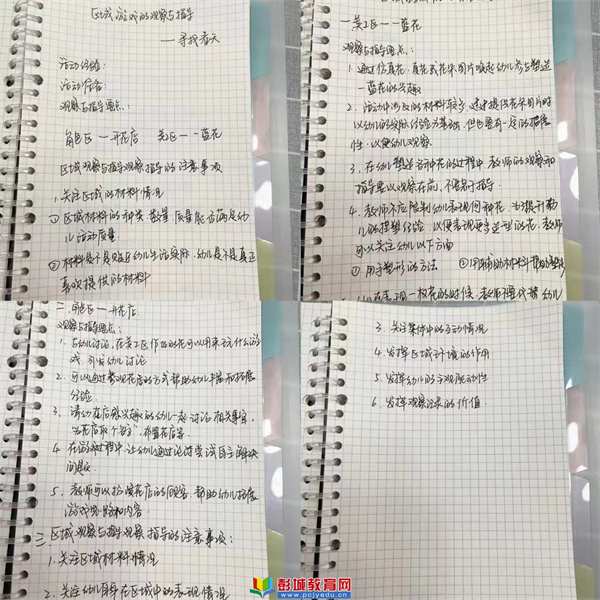 区域游戏的观察与指导
——寻找春天
活动经验:
活动准备
观察与指导要点:
角色区一开花店 美工区一一篮花
区域观察与指导观察指导的注意事项
1.关注区域的材料情况
①区域材料的种类 数量 质量能否满足幼
儿活动质量
②材料是不是贴近幼儿生活实际,幼儿是不是真正
喜欢提供的材料
一美工区一一篮花
观察与指导要点:
1.通过仿真花、真花或花朵图片唤起幼儿参与塑造
一篮花的兴趣
2.
以幼儿的实际经验为基础,但也要有一定的
性,以便幼儿观察
3.在幼儿塑造各种花的过程中,教师的观察和
指导要以观察在前,不急于指导
4.教师不应限制幼儿表现何种花,为提升幼
儿的 经验,以便表现更多造型的花,教师
可以关注幼儿以下方面
①用于塑形的方法 ②用辅助材料
的时候,教师不要代替幼儿
二角色区一开花店
观察与指导要点:
1.与幼儿讨论,在美工区作的花可以用来玩什么游
戏,引发幼儿讨论
2.可以通过参观花店的方式帮助幼儿丰富和拓展
经验
3.请幼在店感兴趣的幼儿一起讨论相关事宜,
为花店取个名字,布置花店等
4.在游戏过程中,让幼儿通过讨论尝试自主解决
问题
5.教师可以扮演花店的顾客,帮助幼儿拓展
游戏思路和内容
三区域观察与指导观察指导的注意事项:
1.关注区域材料情况
2.关注幼儿自身在区域中的表现情况
3.关注集体中的互动情况
4.发挥区域环境的作用
5.发挥幼儿的主观能动性
6.发挥观察记录的价值
彭城教育网
www.pcjyedu.cn